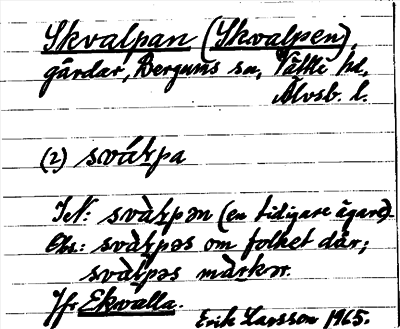 Skvalpan (Skvalpen),
gårdar, Bergums sn, Vättle hd,
Älvsb. l.
(2) svàɽpa
IN: svàɽpən (en tidigare ägare).
Obs.: svàɽpəs om folket där;
svàɽpəs
Jfr Ekvalla.
Erik Larsson 1965.